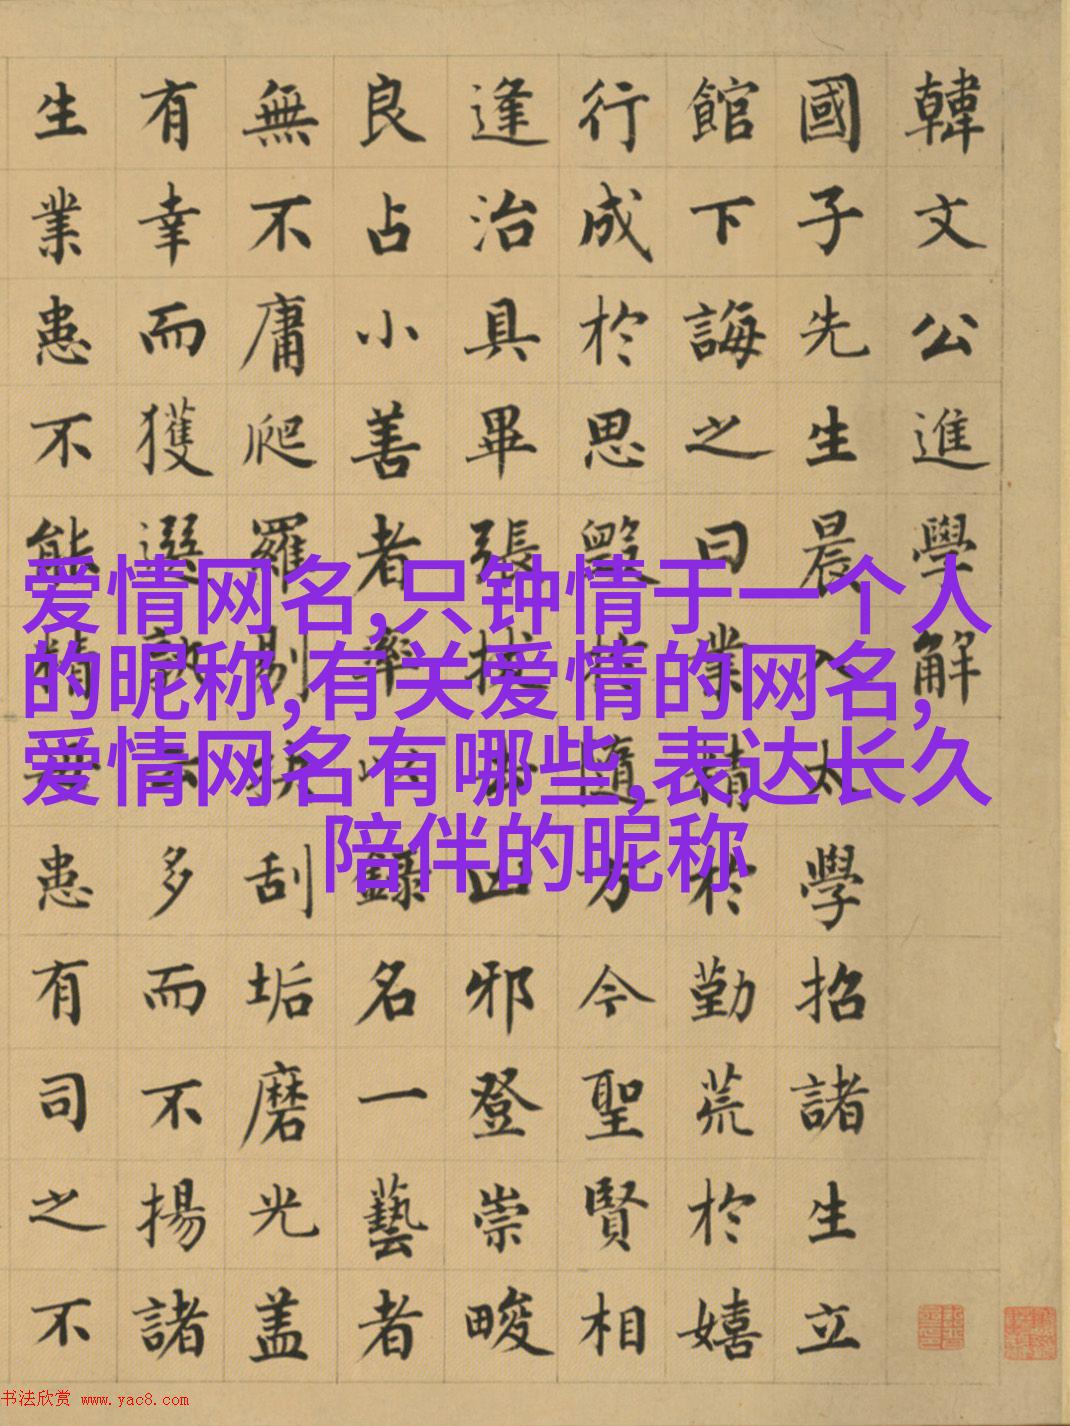 韓文公進學解
國子先生晨入太學招諸生立
館下誨之曰業精於勤荒於嬉
行成於思毀於隨方今聖賢相
逢治具畢張拔去凶邪登崇畯
良占小善者率以錄名一藝者
無不庸爬羅剔抉刮垢磨光盖
有幸而獲選孰云多而不揚諸
生業患不能精無患有司之不
爱情网名,只钟情于一个人
的昵称,有关爱情的网名,
爱情网名有哪些,表达长久
陪伴的昵称
书法欣赏 www.yac8.com